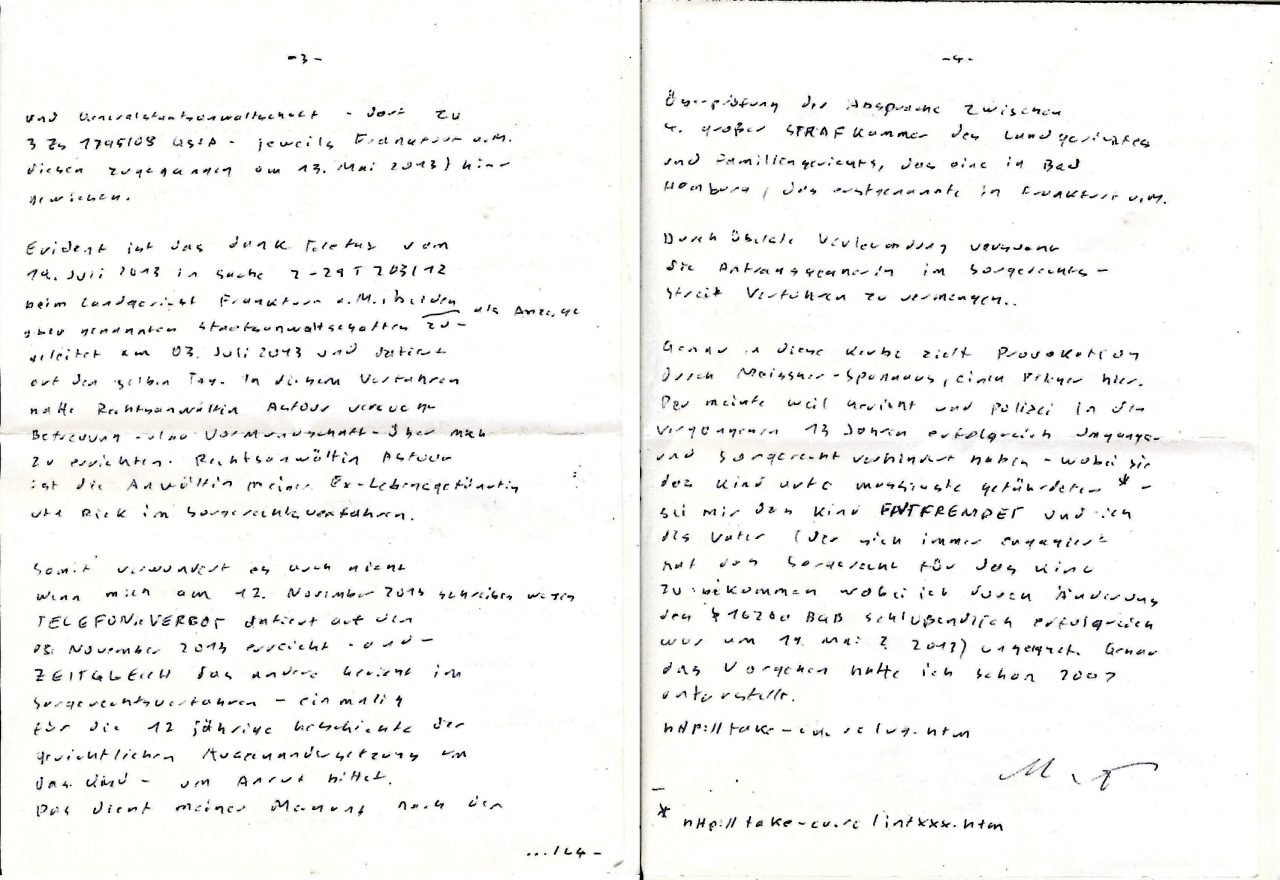 -3-
und Generalstaatsanwaltschaft - dort zu
3 Zs 1795/08 GStA - jeweils Frankfurt a.M.
diesen zugegangen am 13. Mai 2013) hin-
gewiesen.
Evident ist das dank Telefax vom
19. Juli 2013 in Sache 2-29 T 203/12
beim Landgericht Frankfurt a.M., beiden
oben genannten Staatsanwaltschaften als Anzeige zu-
geleitet am 03. Juli 2013 und datiert
auf den selben Tag. In diesem Verfahren
hatte Rechtsanwältin versucht
Betreuung - also Vormundschaft - über mich
zu errichten. Rechtsanwältin
ist die Anwältin meiner Ex-Lebensgefährtin
Ute Rick im Sorgerechtsverfahren.
Somit verwundert es auch nicht
wenn mich am 12. November 2013 Schreiben wegen
TELEFONVERBOT datiert auf den
08. November 2013 erreicht - und -
ZEITGLEICH das andere Gericht im
Sorgerechtsverfahren - einmalig
für die 12 jährige Geschichte der
gerichtlichen Auseinandersetzung um
das Kind - um Anruf bittet.
Das dient meiner Meinung nach der
.../4-
-4-
Überprüfung der Absprache zwischen
4. großer STRAFKammer des Landgerichtes
und Familiengerichts, das eine in Bad
Homburg, das erstgenannte in Frankfurt a.M.
Durch übelste Verleumdung versucht
die Antragsgegnerin im Sorgerechts-
streit Verfahren zu vermengen..
Genau in diese Kerbe zielt Provokation
durch Meissner-Spannaus, einen hier.
Der meinte weil Gericht und Polizei in den
vergangenen 13 Jahren erfolgreich Umgangs-
und Sorgerecht verhindert haben - wobei sie
das Kind aufs massivste gefährdeten * -
sei mir das Kind ENTFREMDET und ich
als Vater (der sich immer engagiert
hat das Sorgerecht für das Kind
zu bekommen wobei ich durch Änderung
des § 1626a BGB schlußendlich erfolgreich
war am 19. Mai 2013) ungeeignet. Genau
das Vorgehen hatte ich schon 2007
unterstellt.
http://take-ca.re/lug.htm
* http://take-ca.re/lintxxx.htm